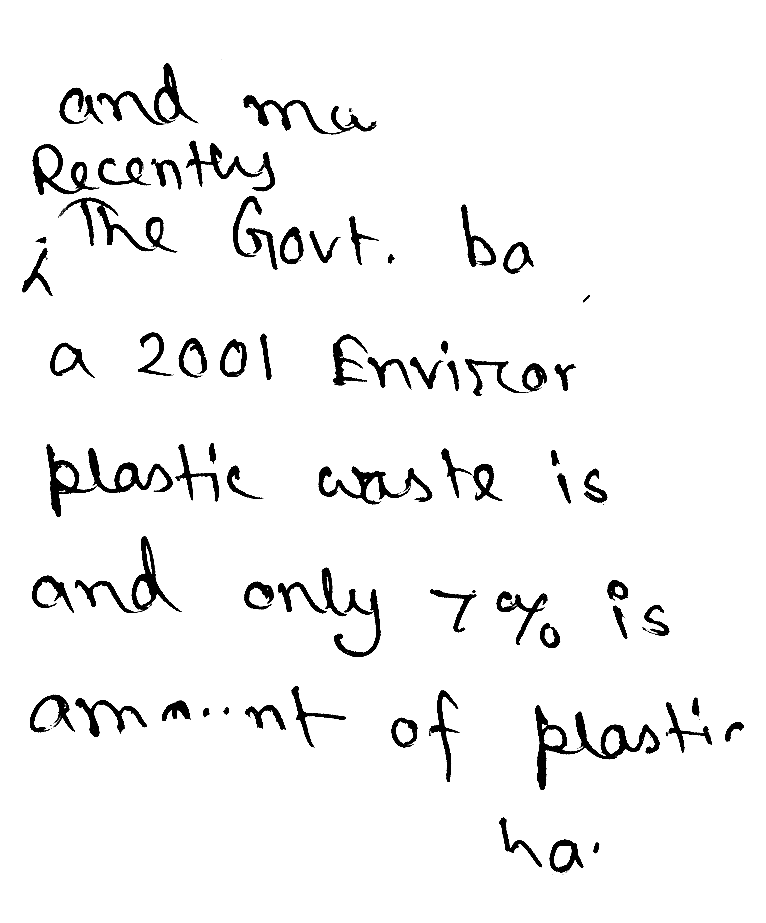 and ma
Recently
The Govt. ba
a 2001 Environ
plastic waste is
and only 7% is
amount of plastic
ha